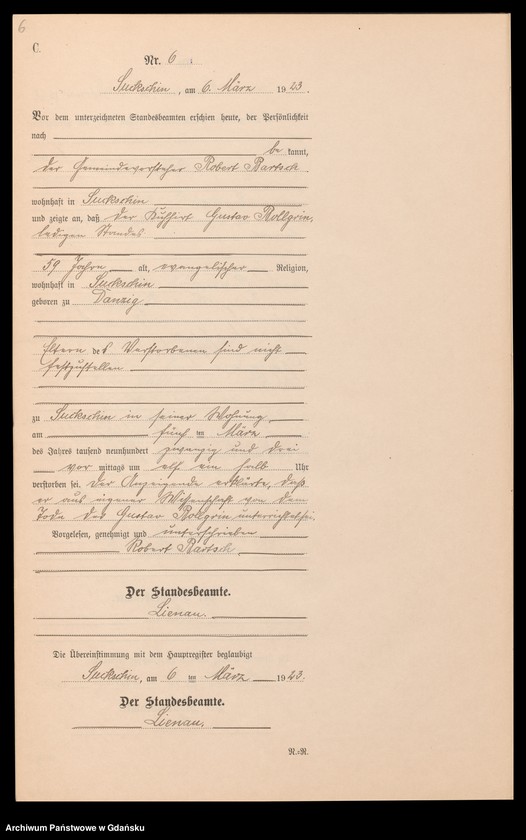 6
C.
Nr. 6
Suckschin, am 6. März 1923.
Vor dem unterzeichneten Standesbeamten erschien heute, der Persönlichkeit
nach
be kannt,
der Gemeindevorsteher Robert Bartsch
wohnhaft in Suckschin
und zeigte an, daß der Kuhhirt Gustav Rollgrin,
ledigen Standes
59 Jahre alt, evangelischer Religion,
wohnhaft in Suckschin
geboren zu Danzig
Eltern des Verstorbenen sind nicht
festzustellen
zu Suckschin in seiner Wohnung
am fünf ten März
des Jahres tausend neunhundert zwanzig und drei
vor mittags um elf ein halb Uhr
verstorben sei. Der Anzeigende erklärte, daß
er aus eigener Wissenschaft von dem
Tode des Gustav Rollgrin unterrichtet sei.
Vorgelesen, genehmigt und unterschrieben
Robert Bartsch
Der Standesbeamte.
Lienau.
Die Übereinstimmung mit dem Hauptregister beglaubigt
Suckschin, am 6 ten März 1923.
Der Standesbeamte.
Lienau.
R.-N.
Archiwum Państwowe w Gdańsku